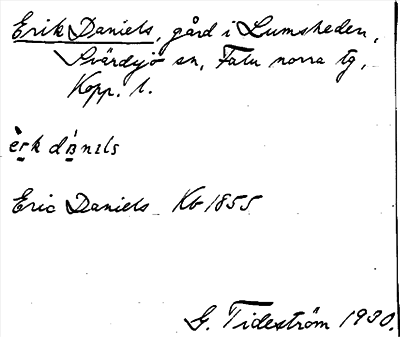 Erik Daniels, gård i Lumsheden,
Svärdsjö sn, Falu norra tg,
Kopp. l.
èrk dánɪls
Eric Daniels Kb 1855
G. Tideström 1930.